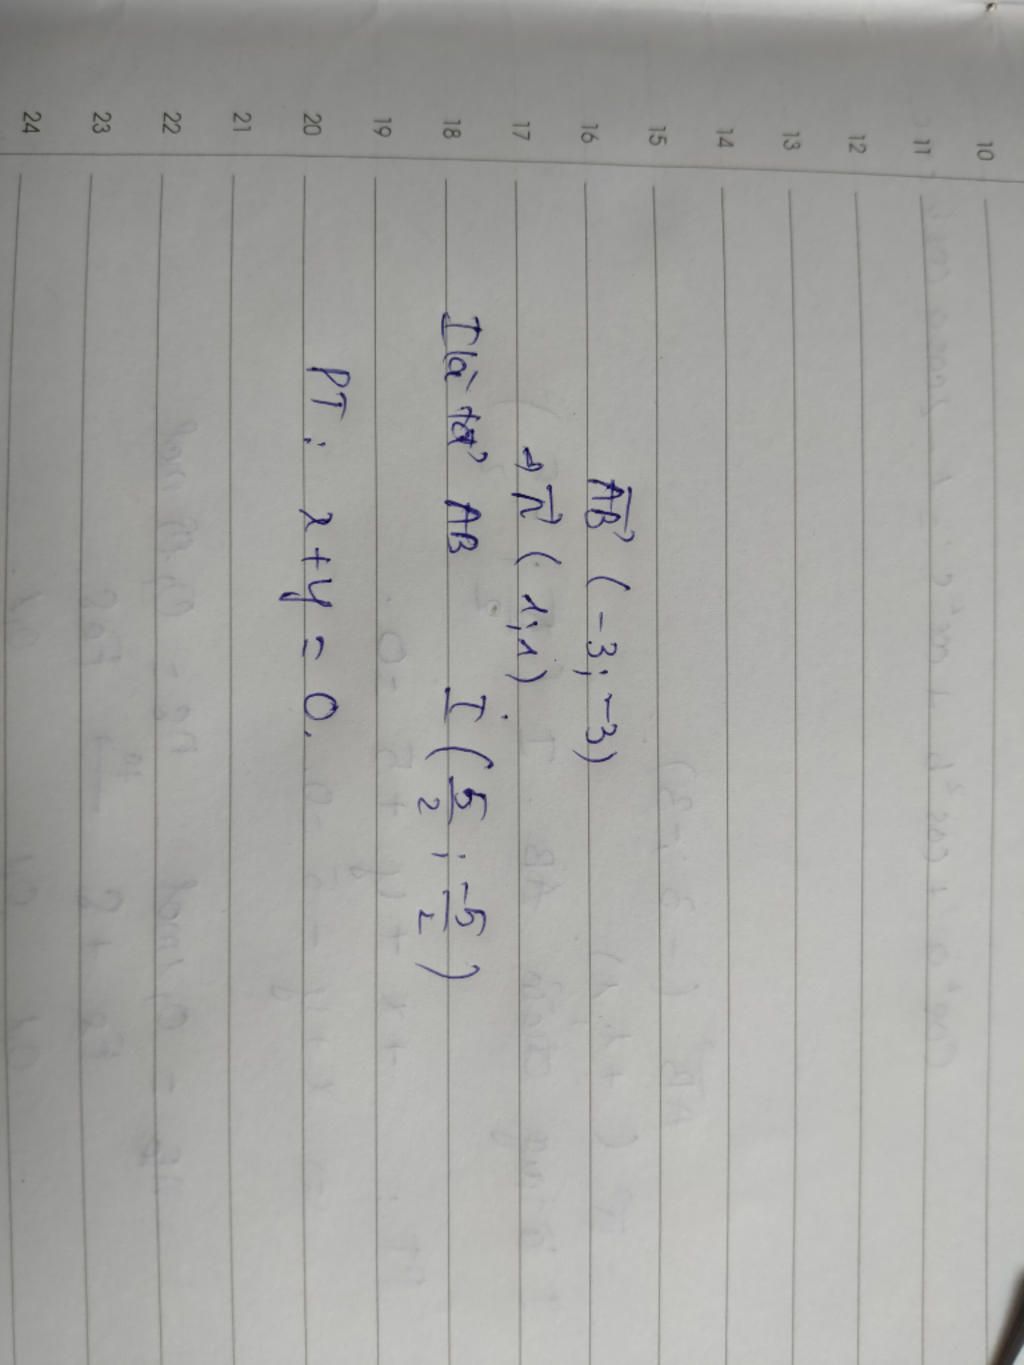 10
11
12
13
14
15
16
17
18
19
20
21
22
23
24
AB (-3; -3)
n (1; 1)
I là AB I (5/2 ; -5/2)
PT: x + y = 0.